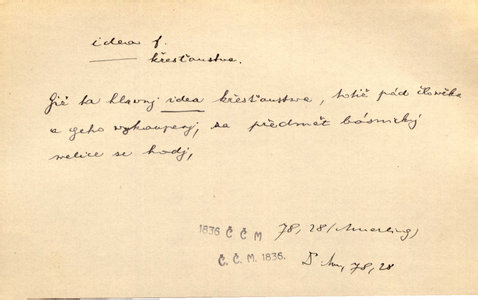 idea f.
křesťanstva.
Giž ta hlavnj idea křesťanstva, totiž pád člověka
a geho wykoupenj, za předmět básnický
welice se hodj,
1836 Č Č M 78, 28 (Amerling)
Č. Č. M. 1836. 78, 28